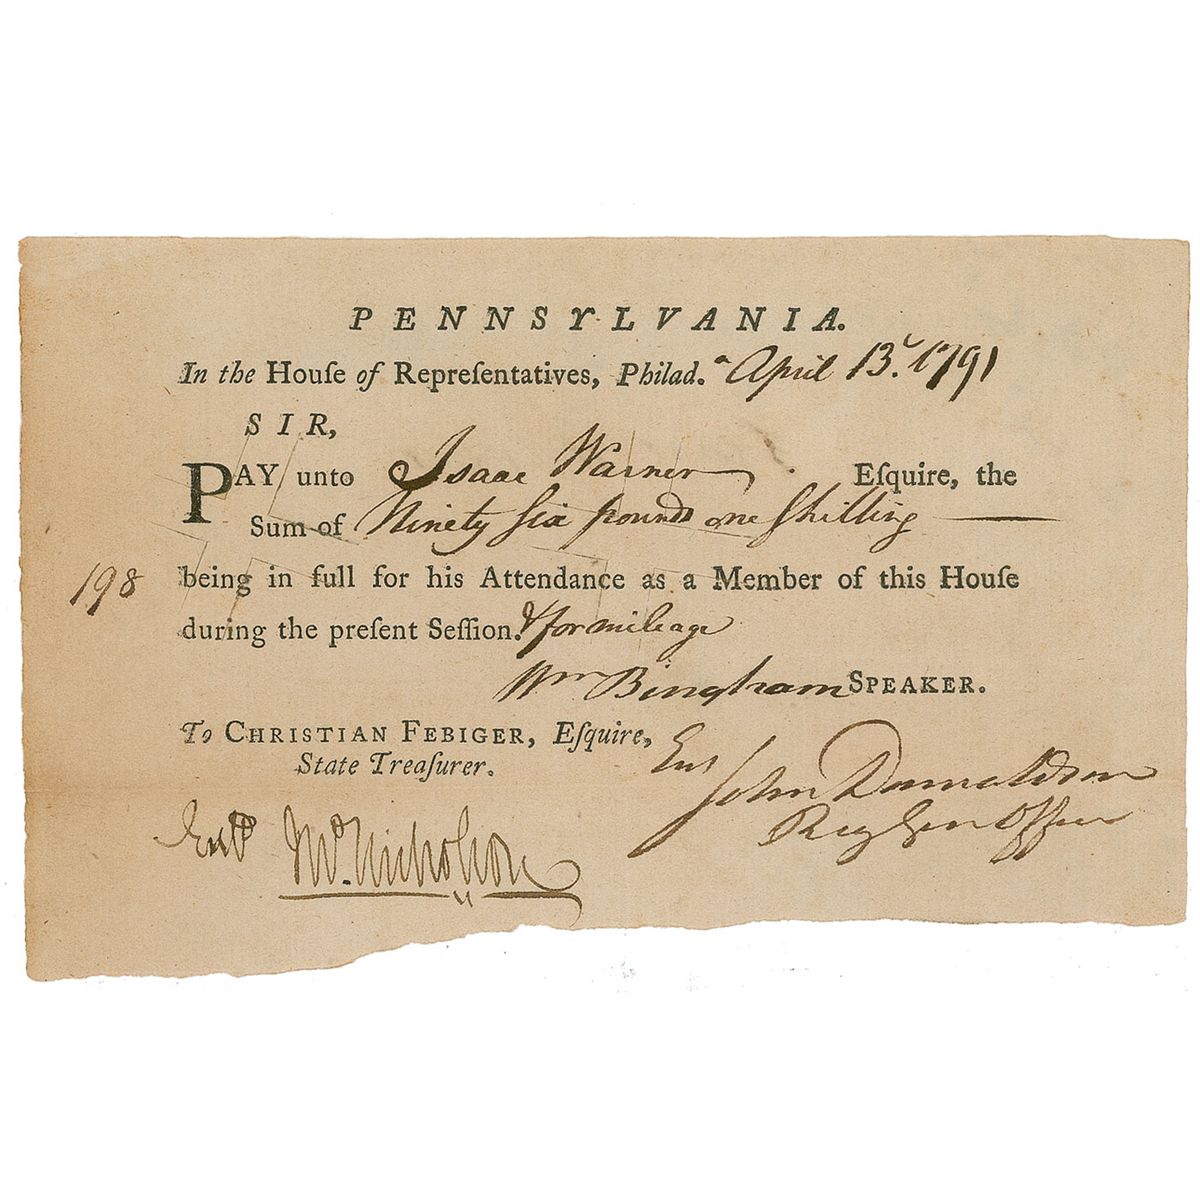 PENNSYLVANIA.
In the Houſe of Repreſentatives, Philad.ª April 13. 1791
SIR,
PAY unto Isaac Warner Eſquire, the
Sum of Ninety Six pounds one Shilling
198 being in full for his Attendance as a Member of this Houſe
during the preſent Seſſion. & for mileage
Wm Bingham SPEAKER.
To CHRISTIAN FEBIGER, Eſquire,
State Treaſurer.
Ent
John Donnaldson
Reg Gen Office
Entd Nicholson